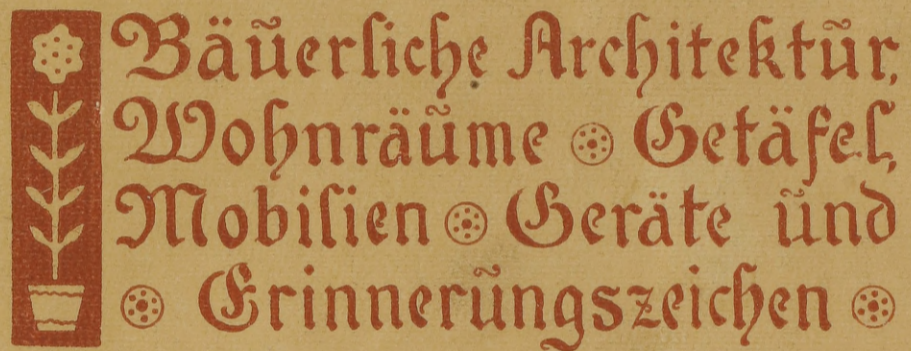 Bäuerliche Architektur,
Wohnräume Getäfel,
Mobilien Geräte und
Erinnerungszeichen